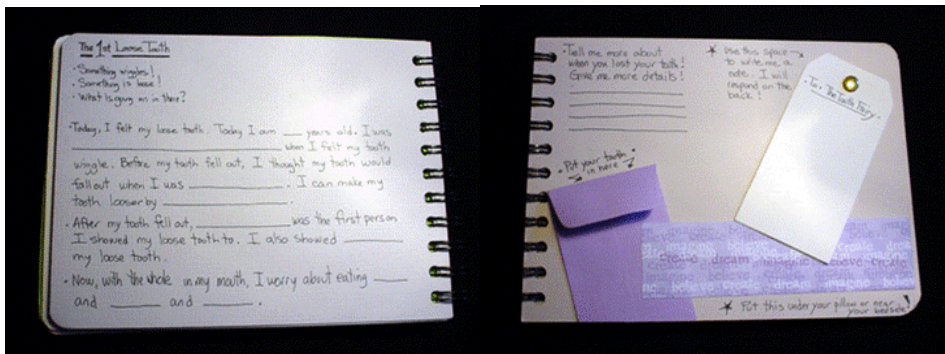 The 1st Loose Tooth
· Something wiggles!
· Something is loose!
· What is going on in there?
· Today, I felt my loose tooth. Today I am ___ years old. I was
_______________ when I felt my tooth
wiggle. Before my tooth fell out, I thought my tooth would
fall out when I was ___________. I can make my
tooth looser by ______________.
· After my tooth fell out, __________ was the first person
I showed my loose tooth to. I also showed _______
my loose tooth.
· Now, with the whole in my mouth, I worry about eating ____
and ______ and ______.
· Tell me more about
when you lost your tooth!
Give me more details!
Use this space
to write me a
note. I will
respond on the
back!
· To: The Tooth Fairy ·
· Put your tooth
in here
imagine believe create dream
create dream imagine believe create
believe create dream imagine believe
Put this under your pillow or near
your bedside!